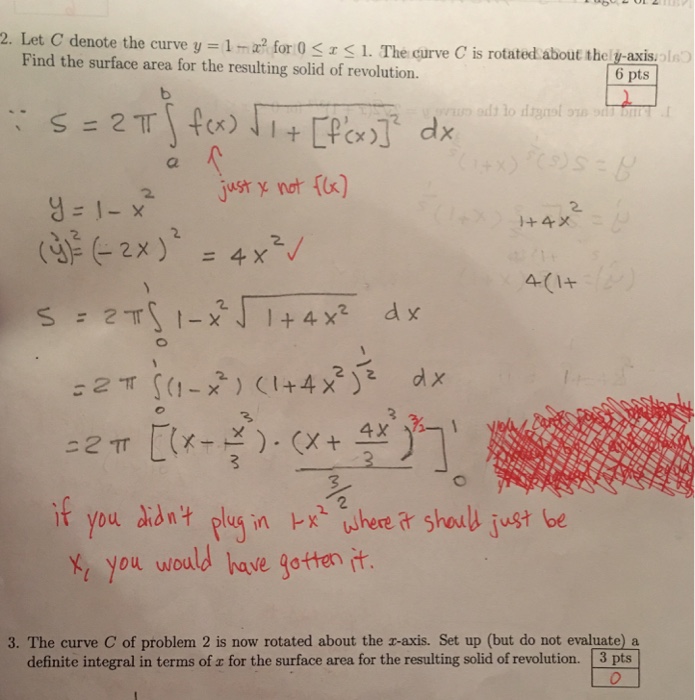 2. Let C denote the curve y = 1 − x² for 0 ≤ x ≤ 1. The curve C is rotated about the y-axis.
Find the surface area for the resulting solid of revolution.
6 pts
2
∵ S = 2π ∫ₐᵇ f(x) √(1 + [f'(x)]²) dx
just x not f(x)
y = 1 − x²
1+4x²
(y')² = (−2x)² = 4x² ✓
4(1+
S = 2π ∫₀¹ 1−x² √(1+4x²) dx
= 2π ∫₀¹ (1−x²) (1+4x²)^(1/2) dx
= 2π [(x − x³/3) · (x + 4x³/3)^(3/2) / (3/2)]₀¹
if you didn't plug in 1-x² where it should just be
x, you would have gotten it.
3. The curve C of problem 2 is now rotated about the x-axis. Set up (but do not evaluate) a
definite integral in terms of x for the surface area for the resulting solid of revolution.
3 pts
0